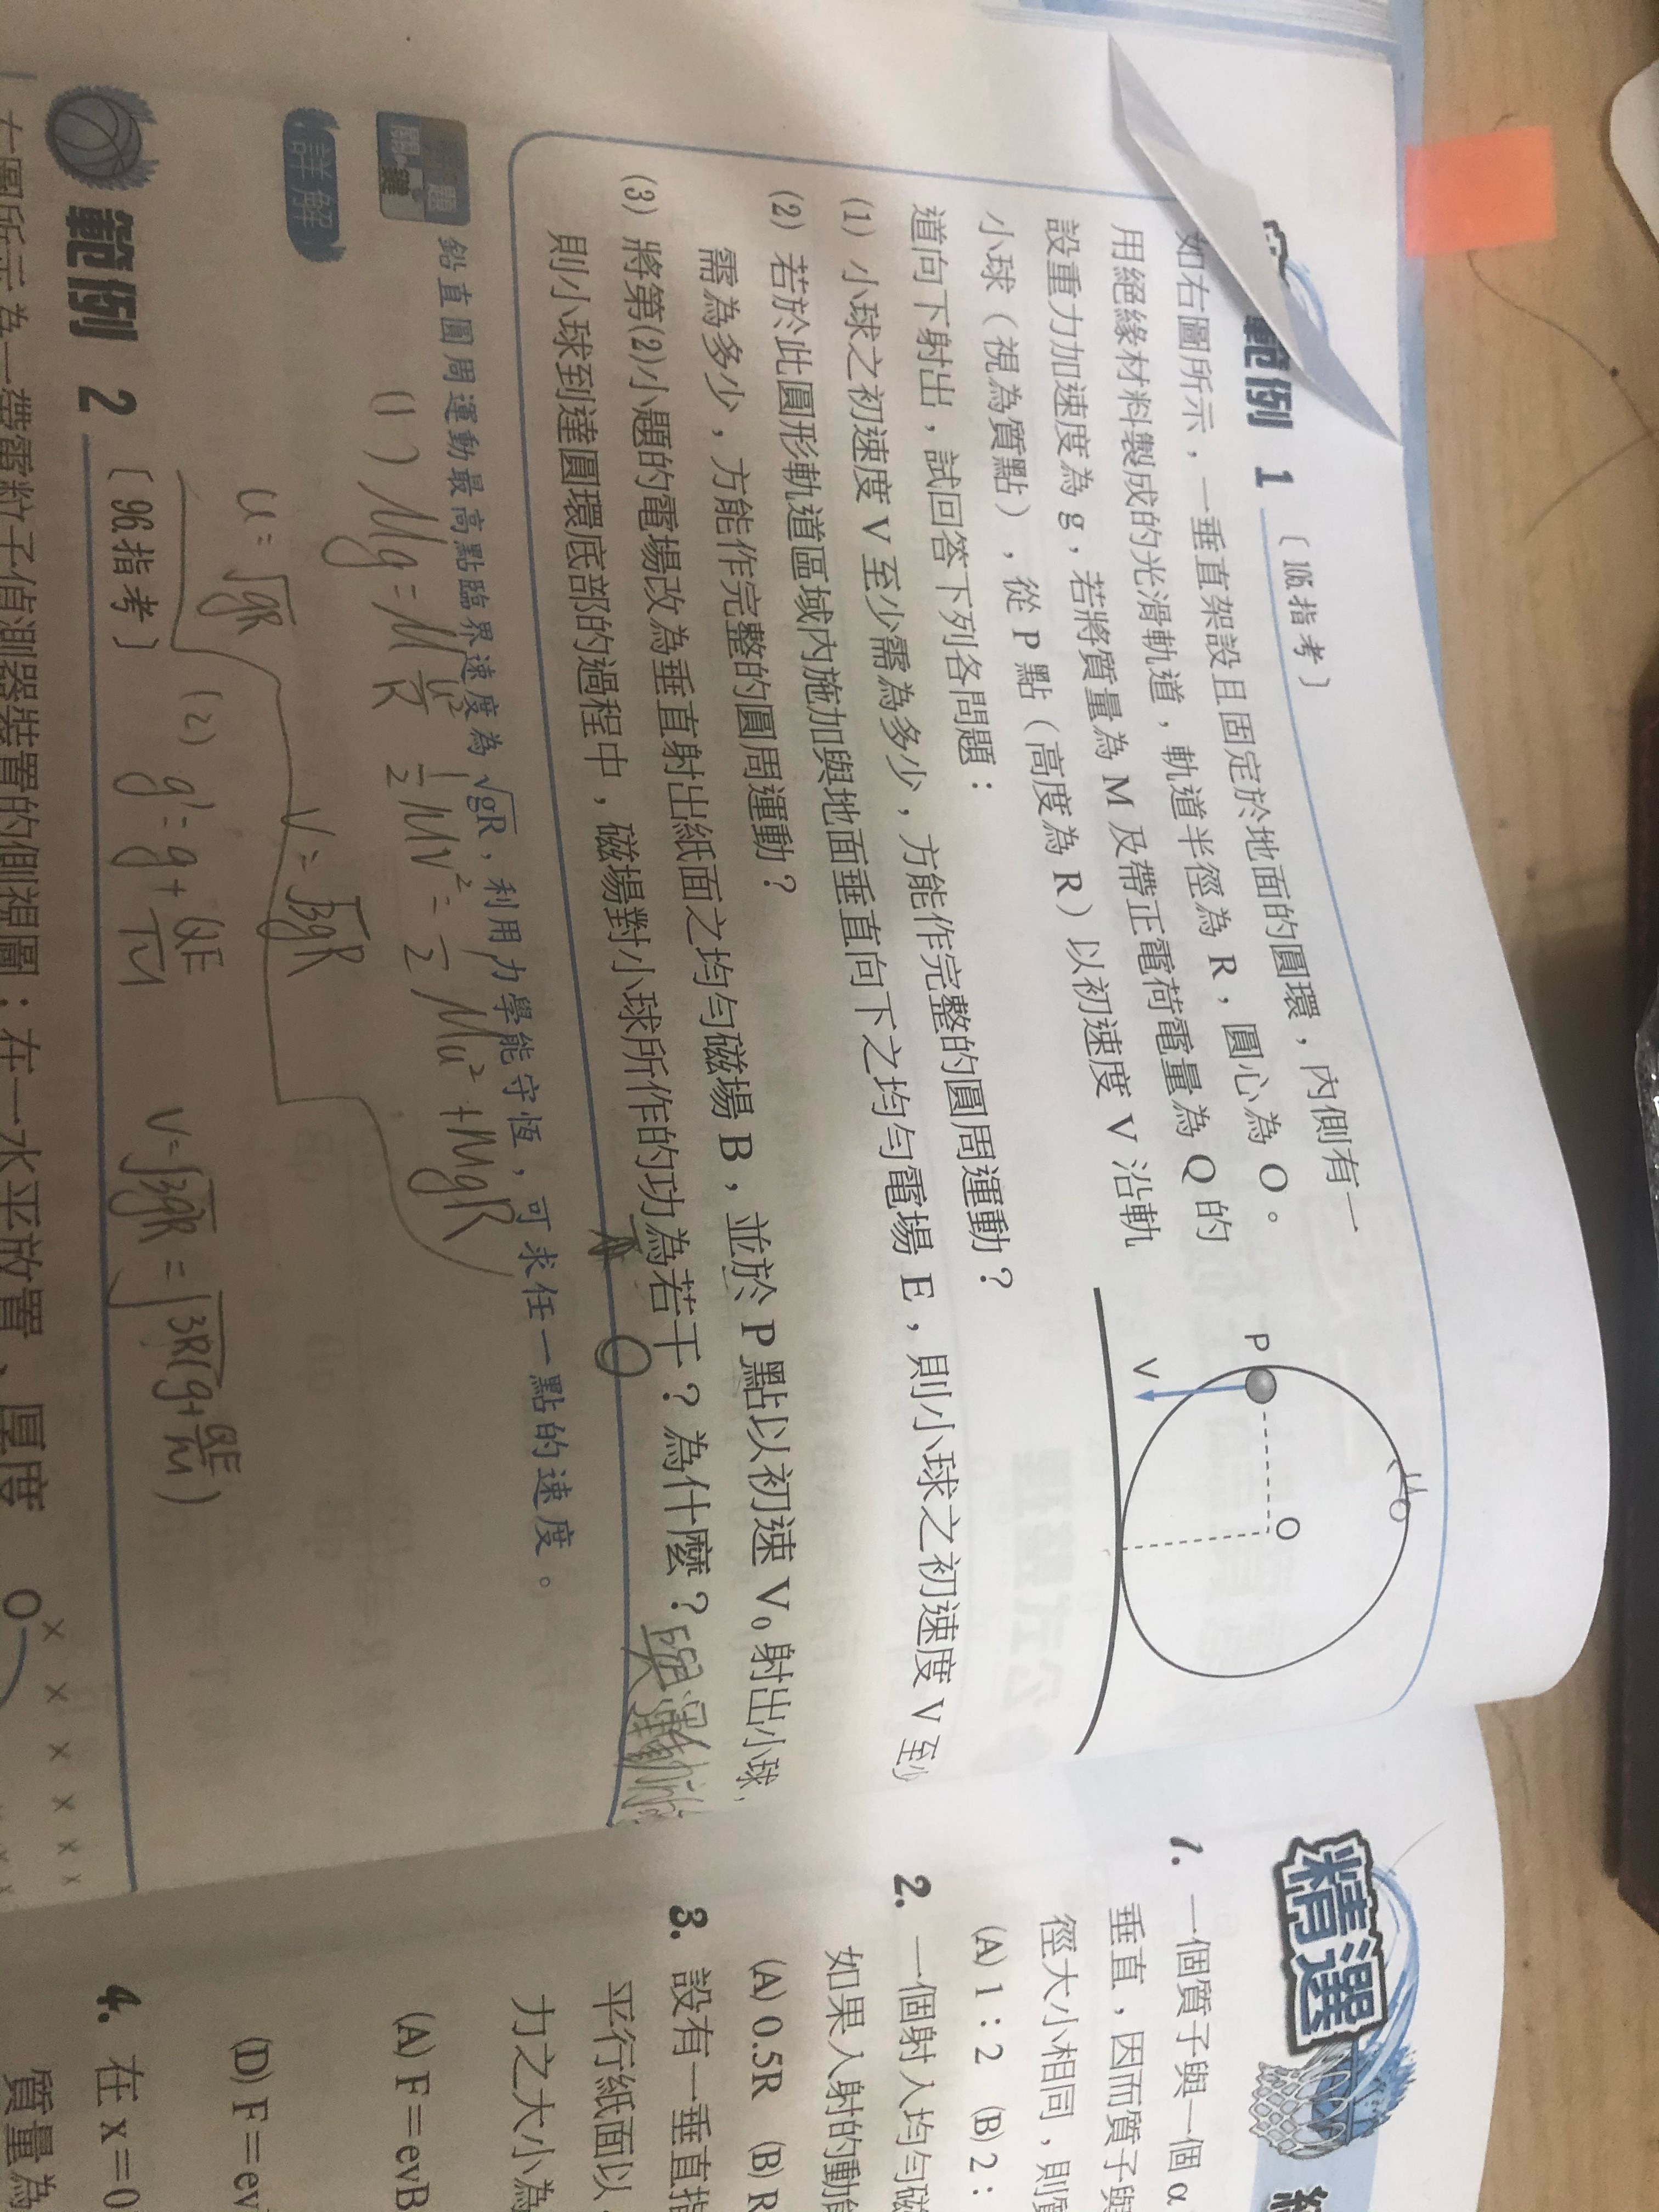 範例 1 〔105.指考〕
如右圖所示，一垂直架設且固定於地面的圓環，內側有一
用絕緣材料製成的光滑軌道，軌道半徑為 R，圓心為 O。
設重力加速度為 g，若將質量為 M 及帶正電荷電量為 Q 的
小球（視為質點），從 P 點（高度為 R）以初速度 V 沿軌
道向下射出，試回答下列各問題：
(1) 小球之初速度 V 至少需為多少，方能作完整的圓周運動？
(2) 若於此圓形軌道區域內施加與地面垂直向下之均勻電場 E，則小球之初速度 V 至少
需為多少，方能作完整的圓周運動？
(3) 將第(2)小題的電場改為垂直射出紙面之均勻磁場 B，並於 P 點以初速 V₀ 射出小球，
則小球到達圓環底部的過程中，磁場對小球所作的功為若干？為什麼？
P
V
O
u
0
鍵
鉛直圓周運動最高點臨界速度為 √gR，利用力學能守恆，可求任一點的速度。
詳解
(1) Mg = M u²/R
½Mv² = ½Mu² + MgR
u = √gR
V = √3gR
(2) g' = g + QE/M
V = √3g'R = √3R(g + QE/M)
範例 2 〔96.指考〕
在一水平放置、厚度
O
× × × × ×
精選
1. 一個質子與一個 α
垂直，因而質子與
徑大小相同，則質
(A) 1：2 (B) 2：
2. 一個射入均勻磁
如果入射的動能
(A) 0.5R (B) R
3. 設有一垂直指
平行紙面以
力之大小為
(A) F＝evB
(D) F＝ev
4. 在 x＝0
質量為